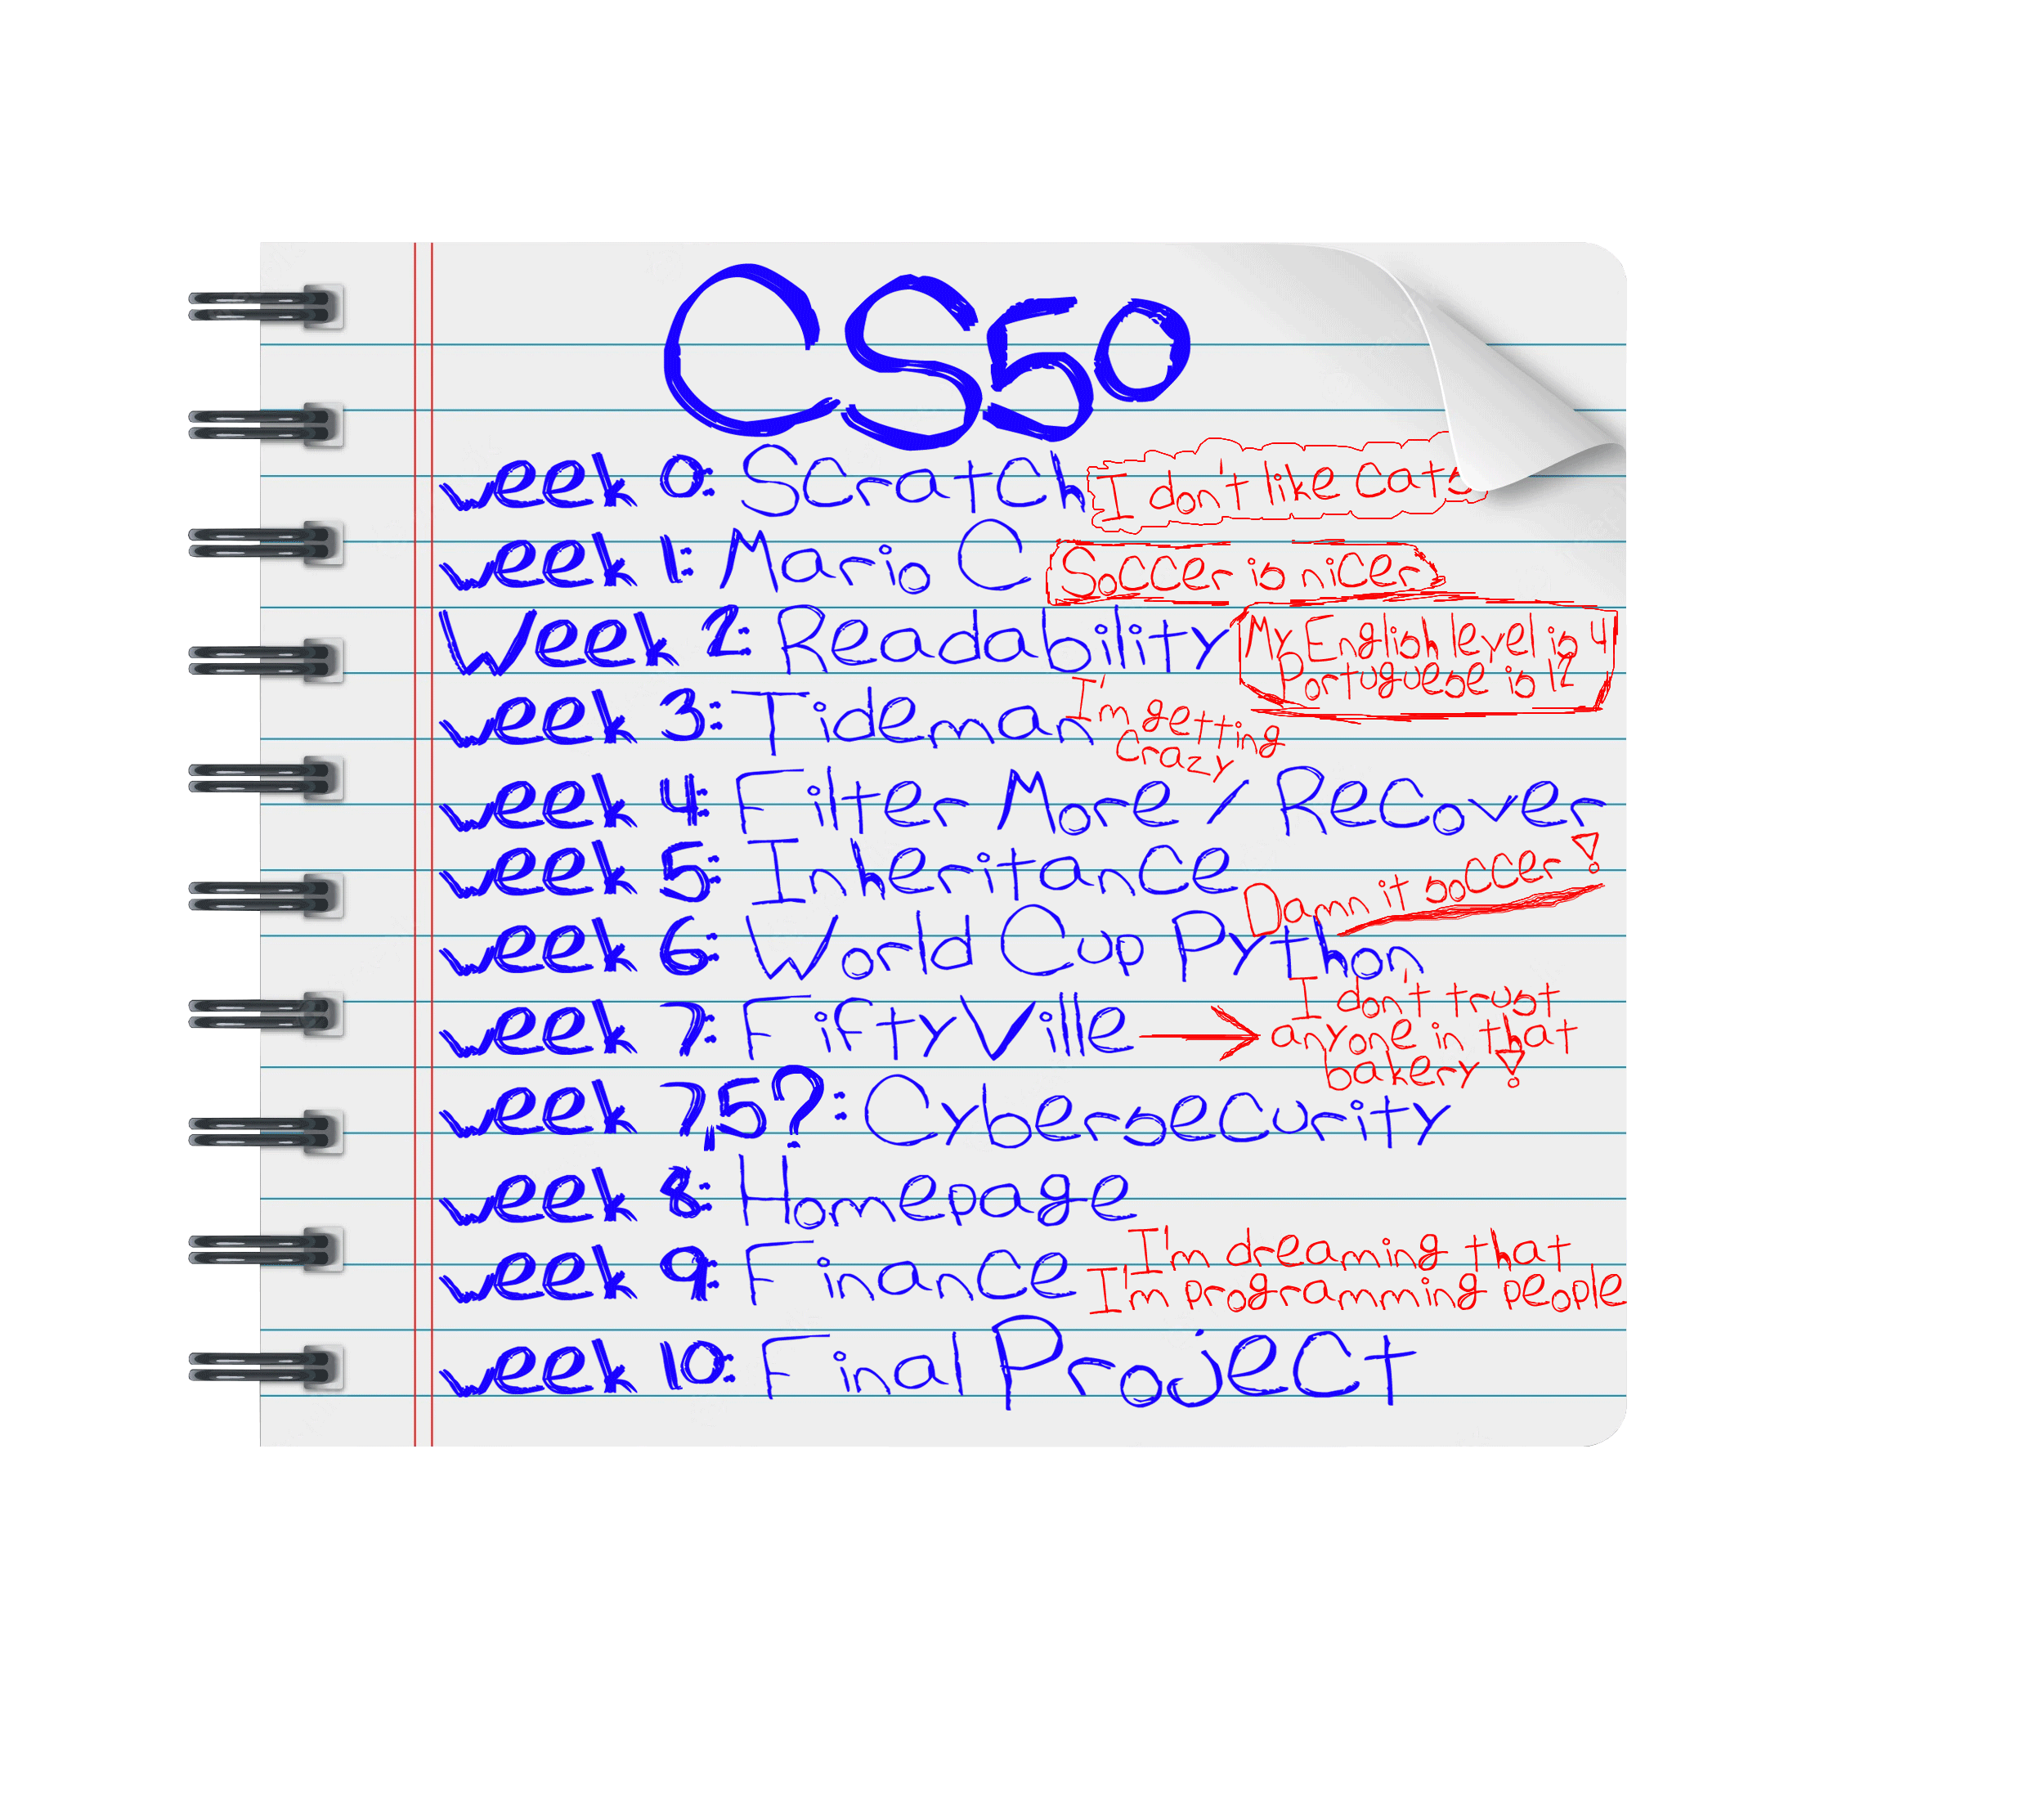 CS50
week 0: Scratch I don't like cats
week 1: Mario C Soccer is nicer
Week 2: Readability My English level is 4
Portuguese is 12
week 3: Tideman I'm getting
crazy
week 4: Filter More / Recover
week 5: Inheritance
Damn it soccer!
week 6: World Cup Python
week 7: FiftyVille → I don't trust
anyone in that
bakery!
week 7,5?: Cybersecurity
week 8: Homepage
week 9: Finance I'm dreaming that
I'm programming people
week 10: Final Project